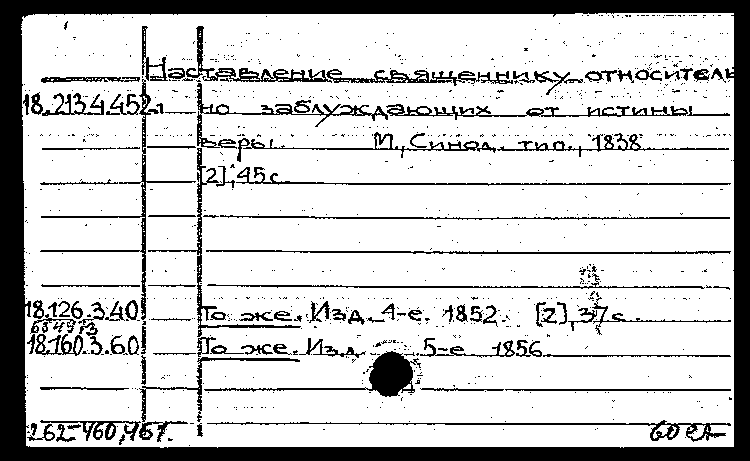 Наставление священнику относитель
18.213.4.452. но заблуждающих от истины
веры. М., Синод. тип., 1838
[2], 45 с.
18.126.3.40 То же. Изд. 4-е. 1852. [2], 37 с.
18.160.3.60 То же. Изд. 5-е 1856.
262-460,461.